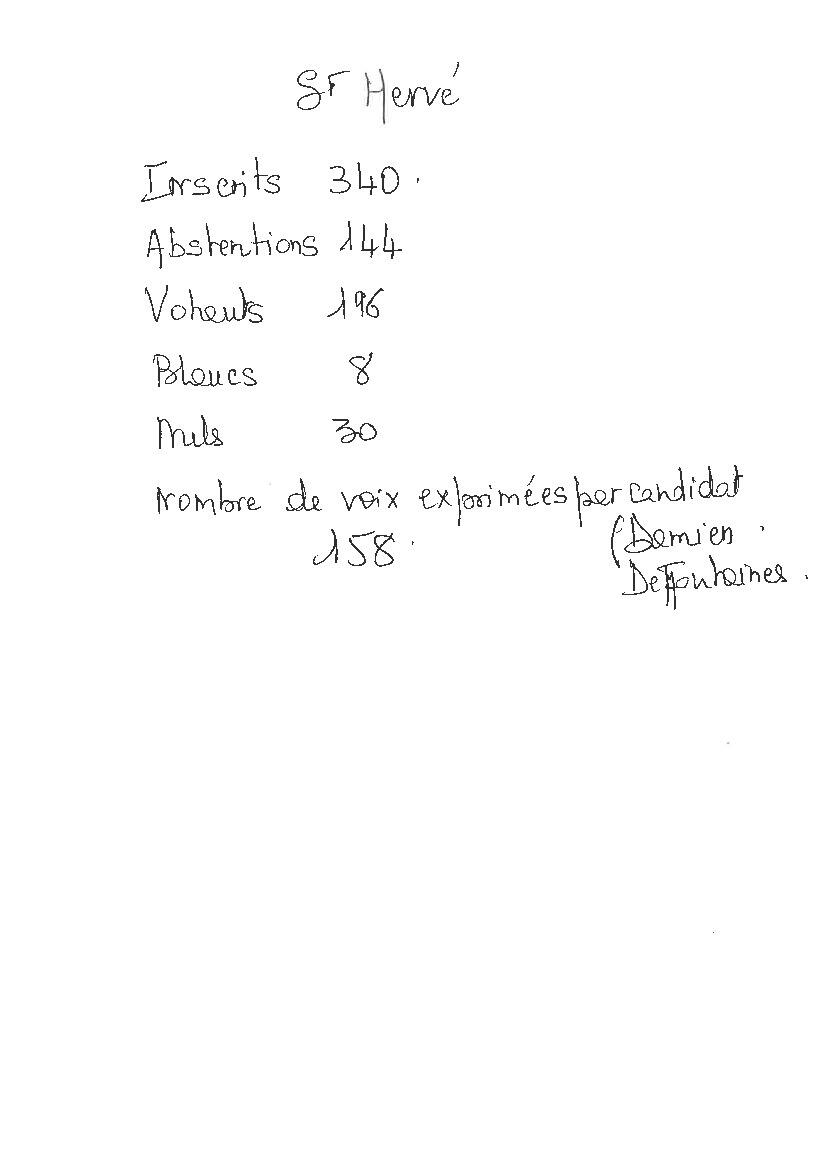 St Hervé
Inscrits 340.
Abstentions 144
Votants 196
Blancs 8
Nuls 30
nombre de voix exprimées par candidat
158. (Damien
Deffontaines.